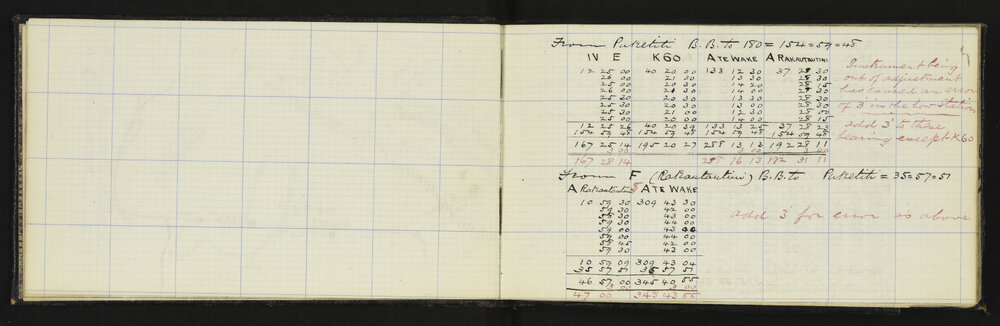 From Puketiti B.B. to 180 = 154=59=48
IV E K60 A TE WAKE A RAKAUTAUTINI
12 25 00 40 20 00 133 12 30 37 28 30
26 00 21 00 13 30 28 30
25 00 20 30 14 20 28 15
26 00 21 30 14 00 28 30
25 30 20 30 13 30 28 30
25 30 20 30 13 00 28 30
25 30 21 00 12 30 28 00
25 00 20 00 14 00 28 15
12 25 26 40 20 39 133 13 25 37 28 23
154 59 48 154 59 48 154 59 48 154 59 48
167 25 14 195 20 27 288 13 13 192 28 11
3 00 3 00 3 00
167 28 14 288 16 13 192 31 11
Instrument being
out of adjustment
has caused an error
of 3' in the low stations
add 3' to these
bearing except K60
From F (Rakautautini) B.B. to Puketiti = 35=57=51
A Rakautautini A TE WAKE
10 59 30 309 43 30
59 30 42 00
58 30 43 00
59 30 44 00
59 00 43 00
59 00 44 00
58 45 42 00
59 30 43 00
10 59 09 309 43 04
35 57 51 35 57 51
46 57 00 345 40 55
3 00 3 00
47 00 345 43 55
add 3' for error as above